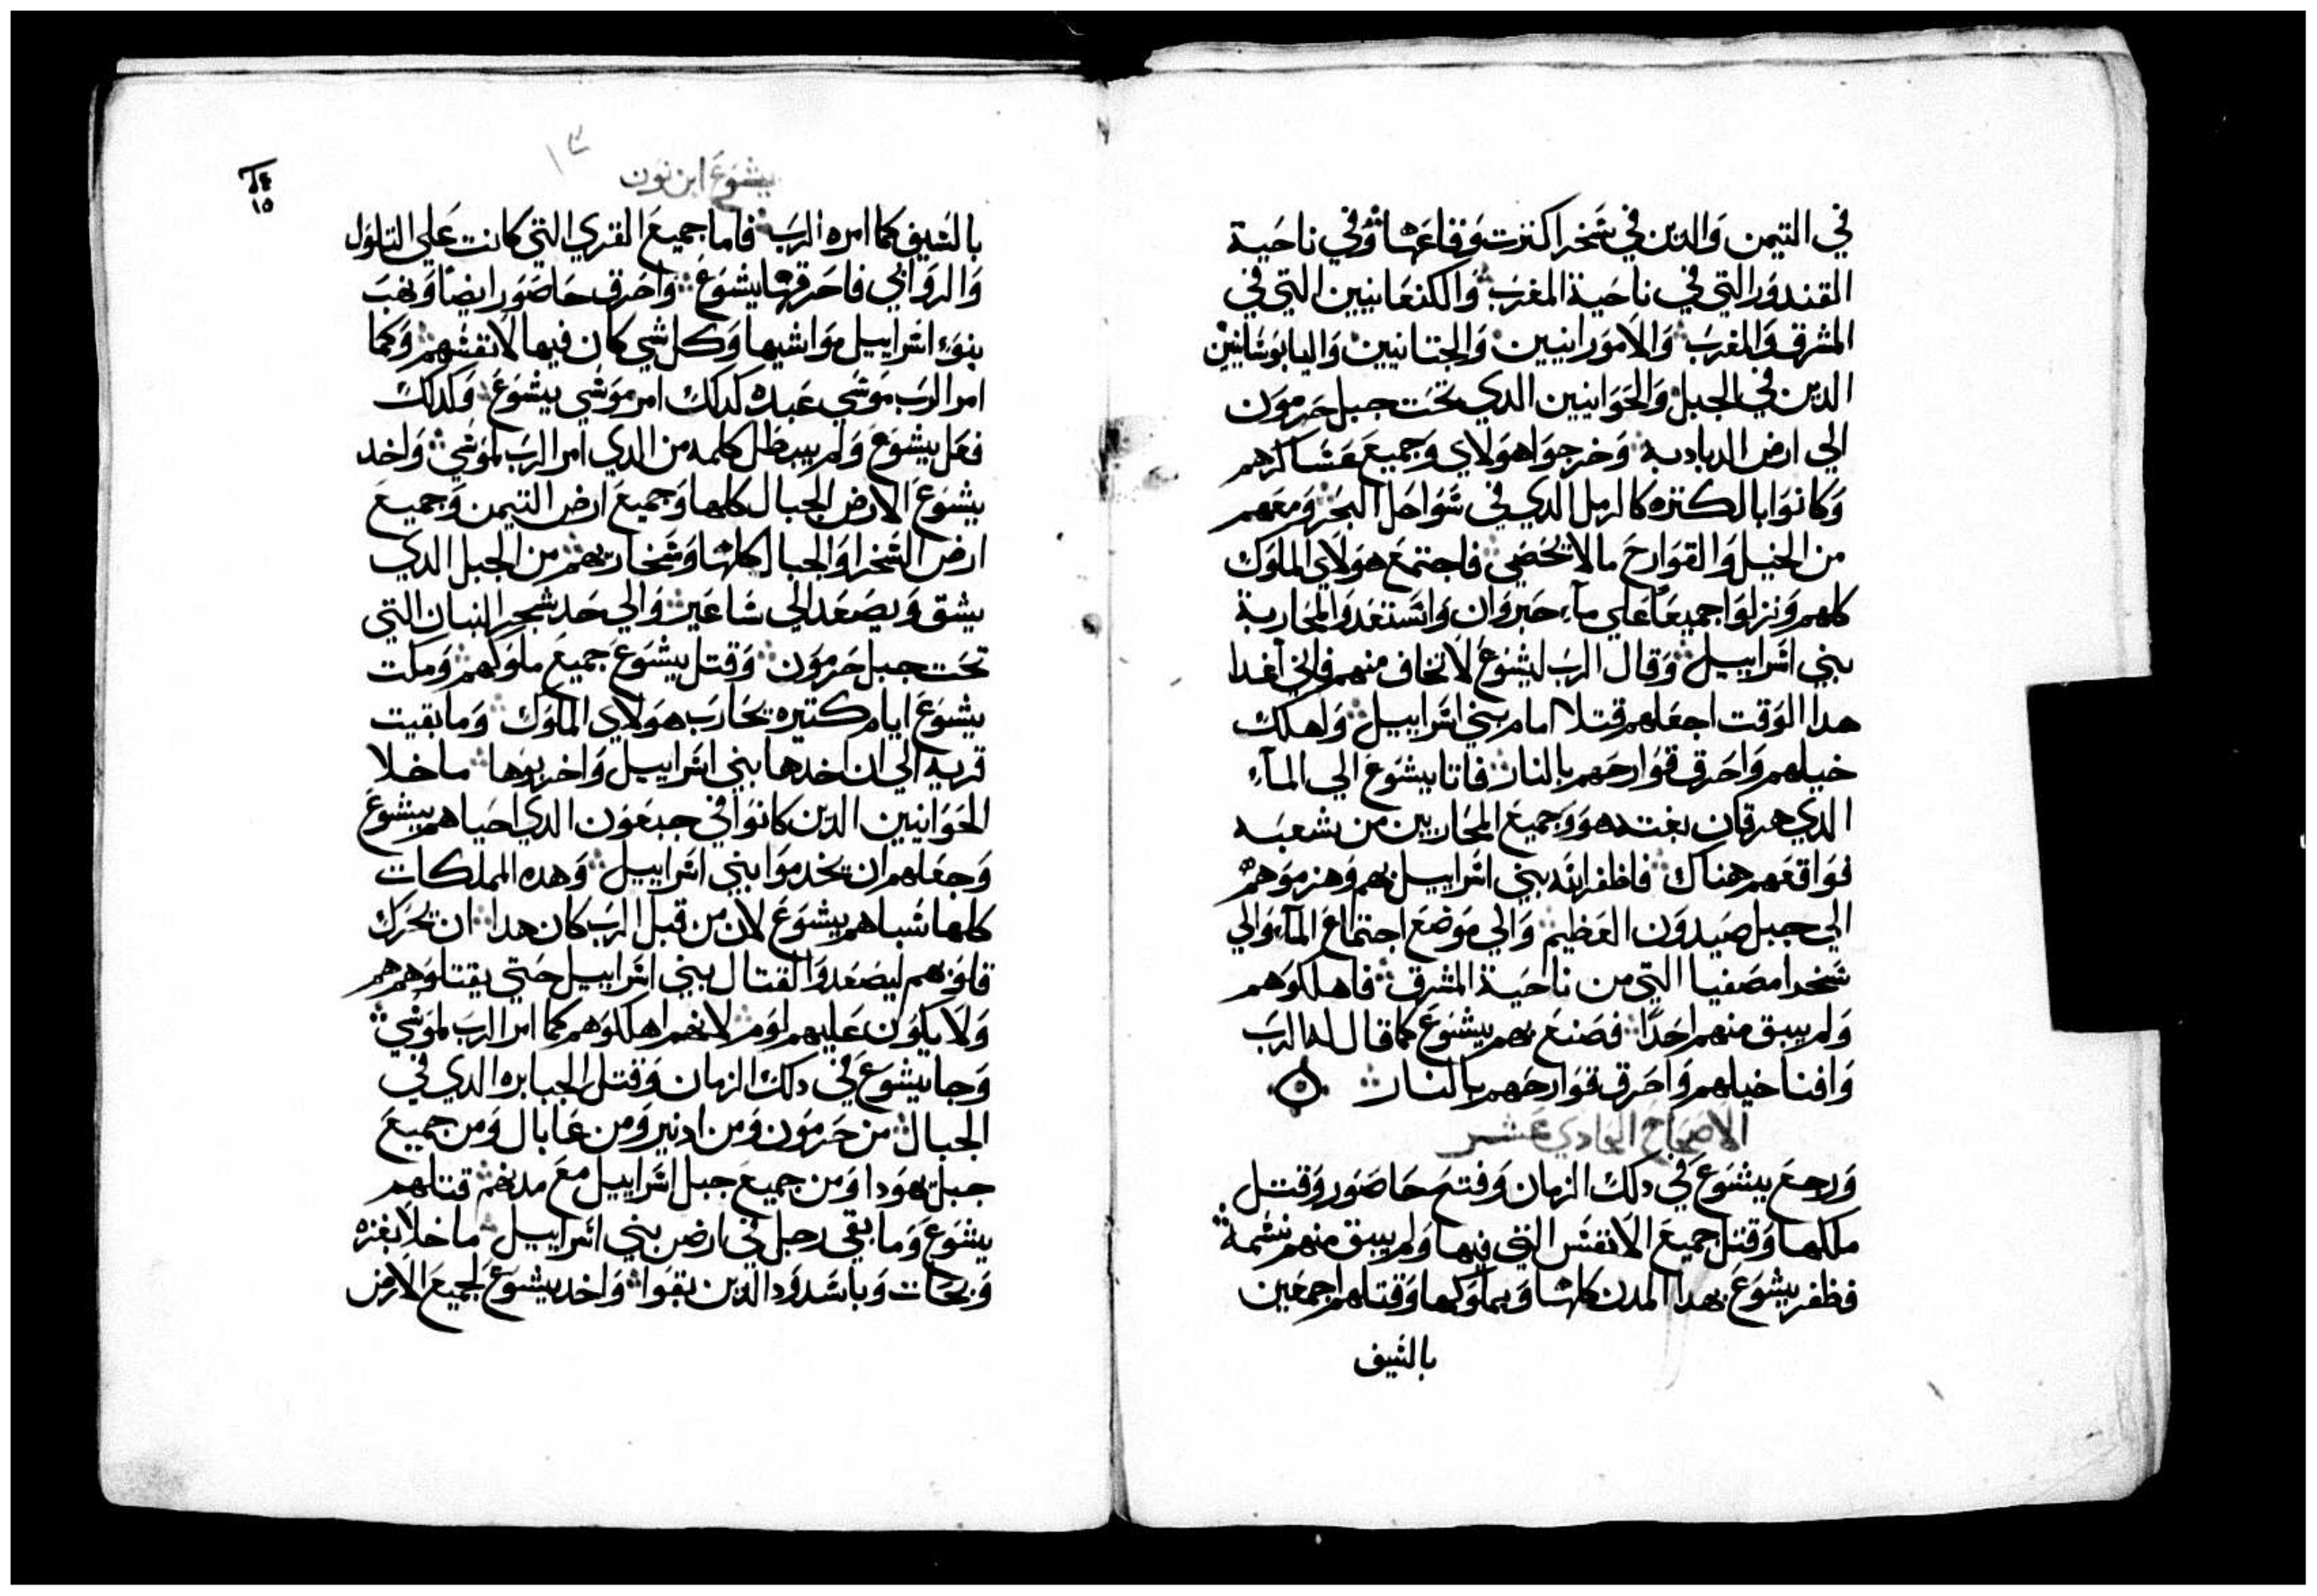 في التيمن والدين في شخرا كنرت وقاعها وفي ناحية
القندور التي في ناحية المغرب والكنعانيين التي في
المشرق والمغرب والامورانيين والحتانيين واليابوسانيين
الدين في الجبل والحوانيين الدي تحت جبل حرمون
الي ارض الدبادبه وخرجوا هولاي وجميع عساكرهم
وكانوا بالكتره كالرمل الدي في سواحل البحر ومعهم
من الخيل والقوارح مالا يحصي فاجتمع هولاي الملوك
كلهم ونزلوا جميعا علي مآء حبروان واستعدوا لمحاربة
بني اسراييل وقال الرب ليشوع لا تخاف منهم فاني اغدا
هدا الوقت اجعلهم قتلا امام بني اسراييل واهلك
خيلهم واحرق قوارحهم بالنار فاتا يشوع الي المآء
الدي هرقان بغته هو وجميع المحاربين من شعبه
فواقعهم هناك فاظفر الله بني اسراييل بهم وهزموهم
الي جبل صيدون العظيم والي موضع اجتماع المآء والي
شخرا مصفيا التي من ناحية المشرق فاهلكوهم
ولم يبق منهم احدا فصنع بهم يشوع كما قال له الرب
وافنا خيلهم واحرق قوارحهم بالنار
الاصحاح الحادي عشر
ورجع يشوع في دلك الزمان وفتح حاصور وقتل
ملكها وقتل جميع الانفس التي فيها ولم يبق منهم نسمة
فظفر يشوع بهدا المدن كلها وبملوكها وقتلهم اجمعين
بالسيف
يشوع ابن نون
١٥
بالسيف كما امره الرب فاما جميع القري التي كانت علي التلول
والروابي فاحرقها يشوع واحرق حاصور ايضا ونهب
بنوا اسراييل مواشيها وكل شي كان فيها لانفسهم وكما
امر الرب موسي عبده كدلك امر موسي يشوع وكدلك
فعل يشوع ولم يبطل كلمه من الدي امر الرب لموسي واخد
يشوع الارض الجبال كلها وجميع ارض التيمن وجميع
ارض الشخرا والجبال كلها وشخاريهم من الجبل الدي
يشق ويصعد الي ساعير والي حد شجر البان التي
تحت جبل حرمون وقتل يشوع جميع ملوكهم ومكت
يشوع ايام كتيره يحارب هولاي الملوك وما بقيت
قريه الي ان اخدها بني اسراييل واخربوها ما خلا
الحوانيين الدين كانوا في جبعون الدي احياهم يشوع
وجعلهم ان يخدموا بني اسراييل وهده المملكات
كلها سباهم يشوع لان من قبل الرب كان هدا ان يحرك
قلوبهم ليصعدوا لقتال بني اسراييل حتي يقتلوهم
ولا يكون عليهم لوم لانهم اهلكوهم كما امر الرب لموسي
وجا يشوع في دلك الزمان وقتل الجبابره الدي في
الجبال من حرمون ومن ادبير ومن عابال ومن جميع
جبل يهودا ومن جميع جبل اسراييل مع مدنهم قتلهم
يشوع وما بقي رجل في ارض بني اسراييل ما خلا بغزه
وبجات وباسدود الدين بقوا واخد يشوع لجميع الارض